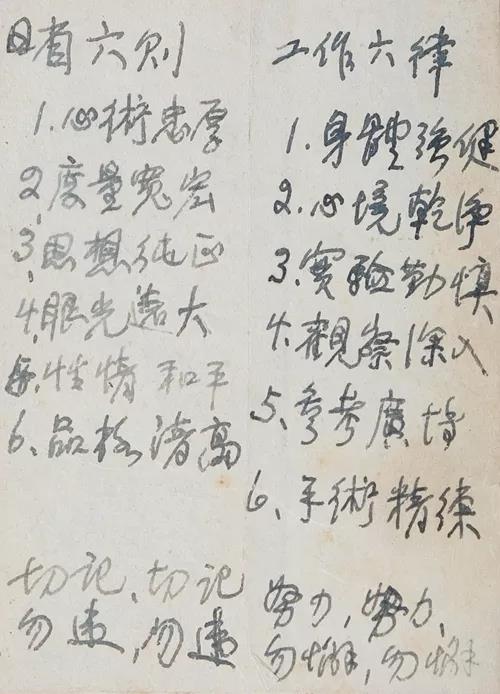 日省六则
1.心術忠厚
2.度量宽宏
3.思想纯正
4.眼光遠大
5.性情和平
6、品格清高
切记、切记
勿違,勿違
工作六律
1.身體強健
2.心境乾净
3.實驗勤慎
4.觀察深入
5.參考廣博
6、手術精练
努力,努力,
勿懈,勿懈